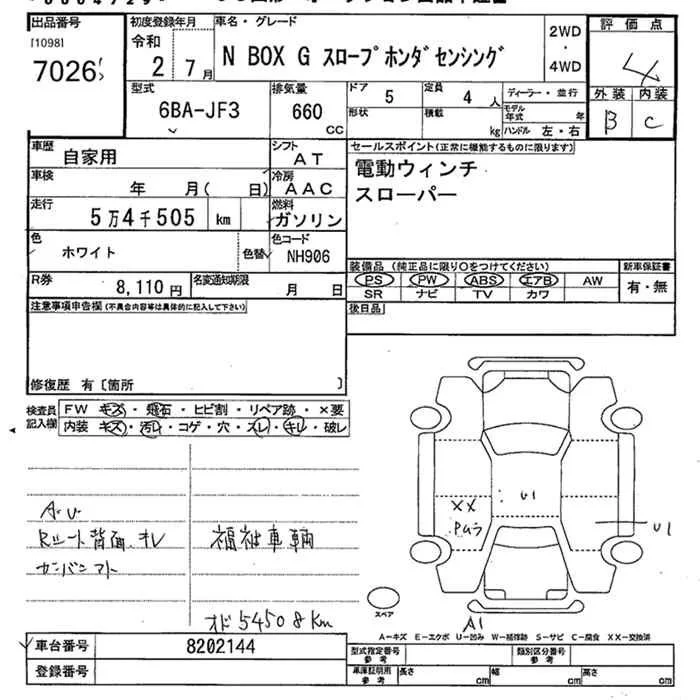 出品番号
[1098]
7026
初度登録年月
令和
2 7月
車名・グレード
N BOX G スロープホンダセンシング
2WD
・
4WD
評価点
4
外装 内装
B C
型式
6BA-JF3
排気量
660
CC
ドア
5
定員
4 人
ディーラー・並行
形状
積載
kg
モデル
年式 年
ハンドル 左・右
車歴
自家用
シフト
AT
車検
年 月( 日)
冷房
AAC
走行
5万4千505 km
燃料
ガソリン
色
ホワイト
色替
色コード
NH906
R券
8,110円
名変通知期限
月 日
セールスポイント(正常に機能するものに限ります)
電動ウィンチ
スローパー
装備品 (純正品に限り○をつけてください)
新車保証書
PS PW ABS エアB AW
SR ナビ TV カワ
有・無
後日品
注意事項申告欄(不具合内容等は具体的に記入して下さい)
修復歴 有〔箇所 〕
検査員
記入欄
FW キズ・飛石・ヒビ割・リペア跡・×要
内装 キズ・汚レ・コゲ・穴・スレ・キレ・破レ
A.U
Rシート背面オレ
カンバンアト
福祉車輌
オド54508Km
XX
U1
U1
A1
スペア
A−キズ E−エクボ U−凹み W−補修跡 S−サビ C−腐食 XX−交換済
車台番号
8202144
登録番号
型式指定番号
参考
類別区分番号
参考
車庫証明用
参考
長さ
cm
幅
cm
高さ
cm